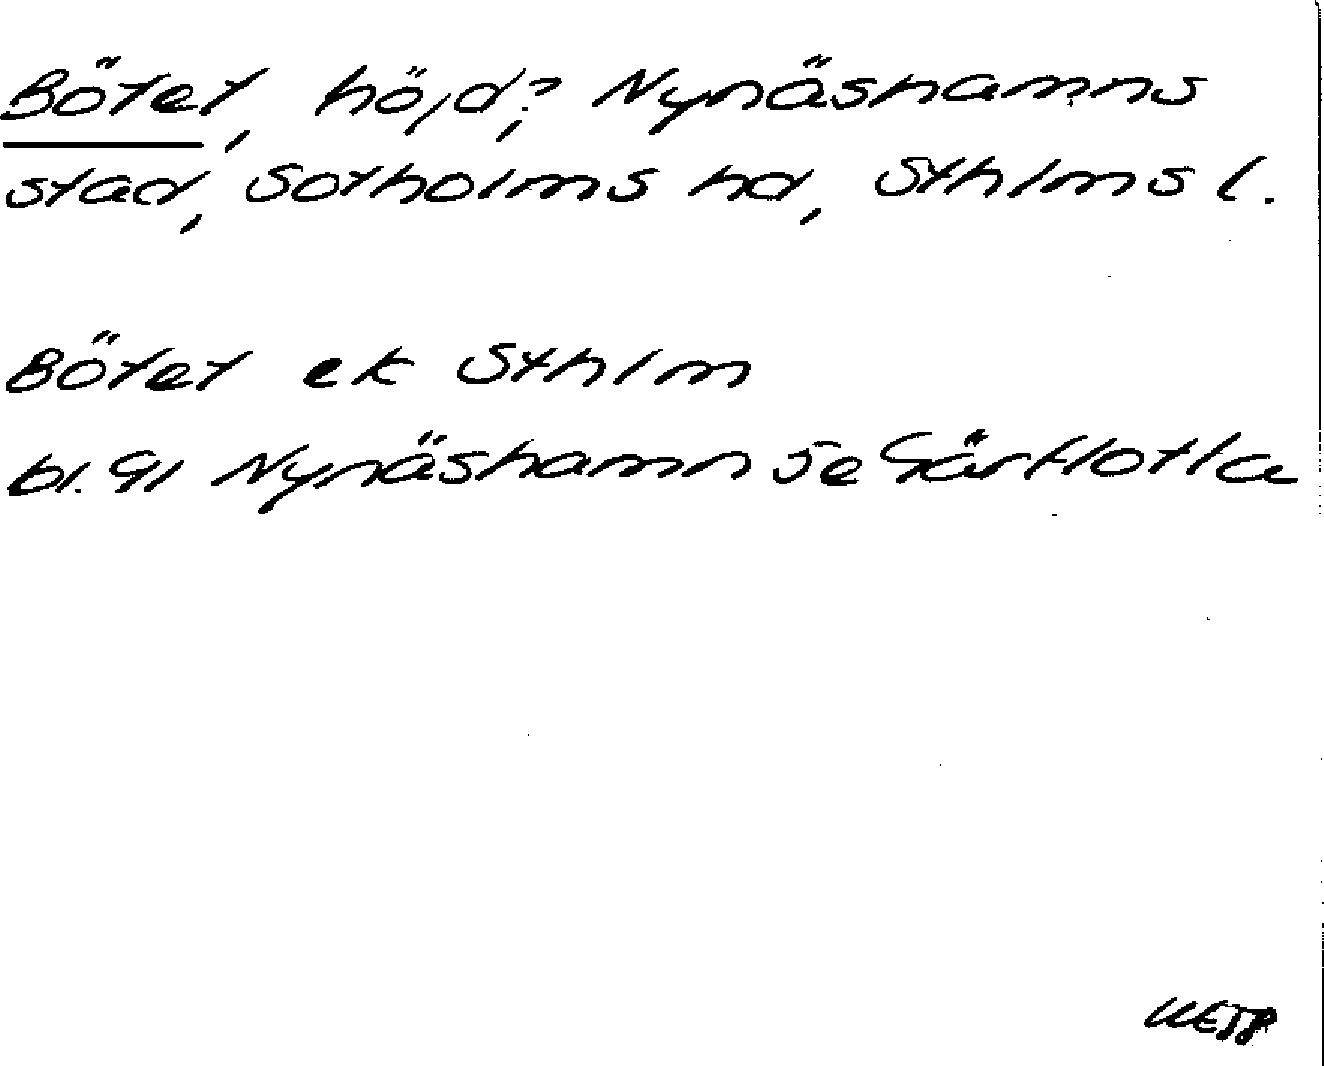 Bötet, höjd?, Nynäshamns
stad, Sotholms hd, Sthlms l.
Bötet ek Sthlm
bl. 91 Nynäshamn se Gårflotla